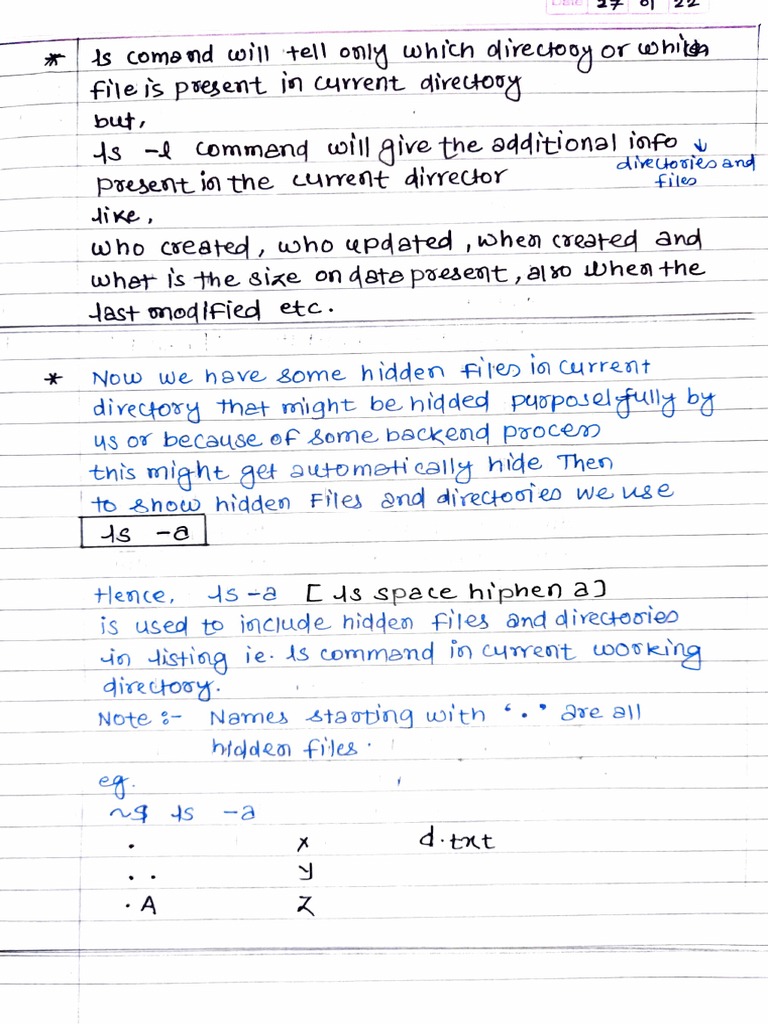 Date 27 01 22
* ls comand will tell only which directory or which
file is present in current directory
but,
ls -l command will give the additional info ↓
directories and
files
present in the current dirrector
like,
who created, who updated, when created and
what is the size on data present, also when the
last modified etc.
* Now we have some hidden files in current
directory that might be hidded purposelyfully by
us or because of some backend process
this might get automatically hide Then
to show hidden Files and directories we use
ls -a
Hence, ls -a [ ls space hiphen a]
is used to include hidden files and directories
in listing ie. ls command in current working
directory.
Note :- Names starting with '.' are all
hidden files.
eg.
~$ ls -a
. x d.txt
. . y
.A z